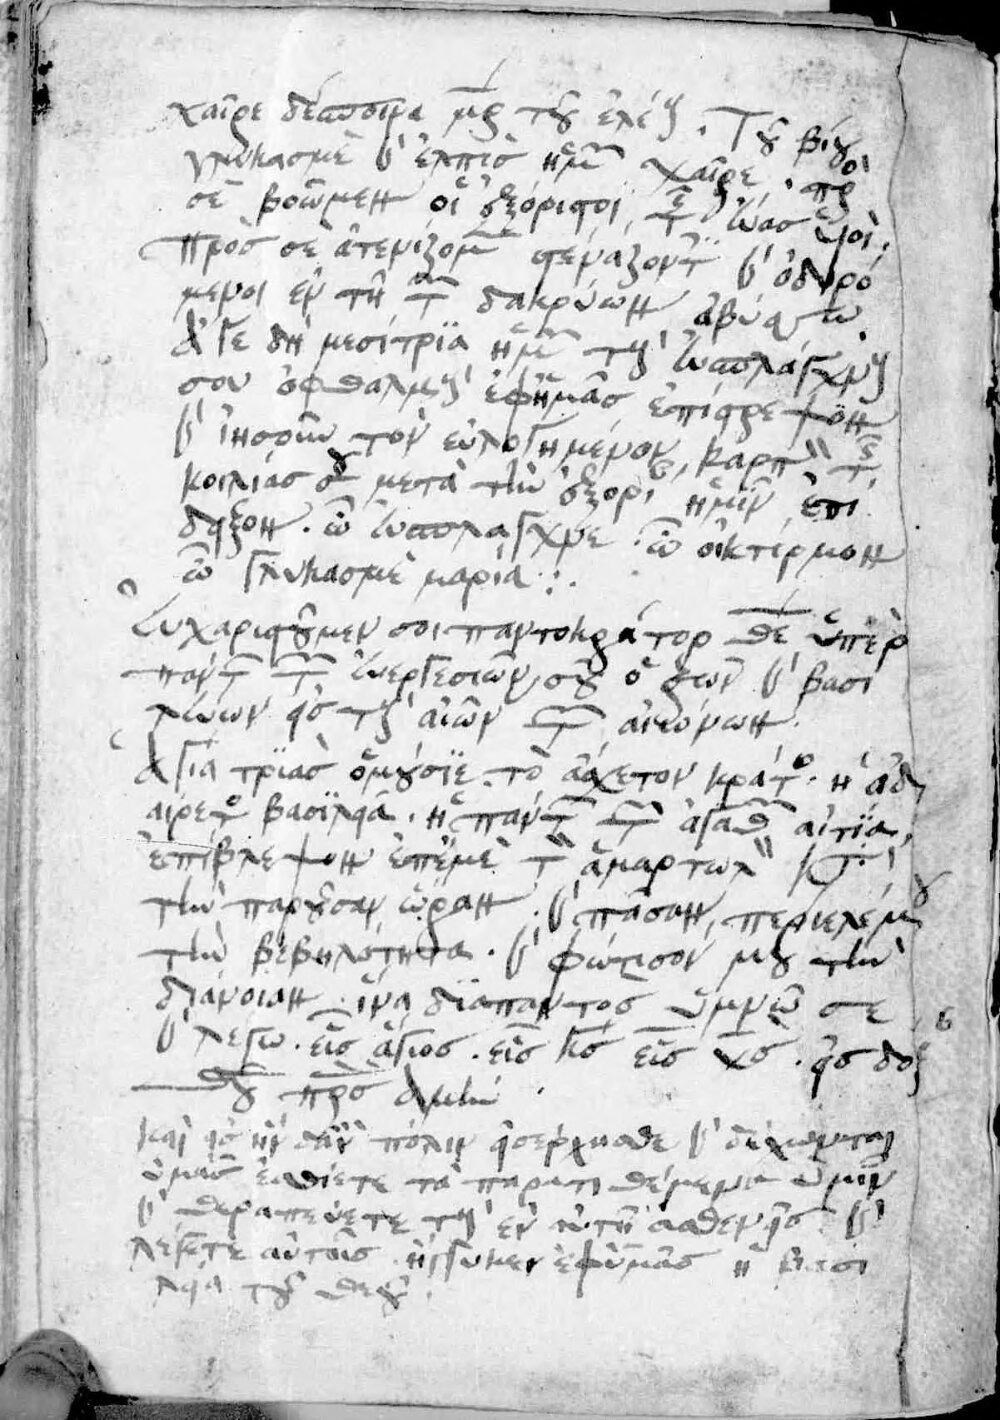 χαῖρε δέσποινα μῆρ τοῦ ἐλέους. Τοῦ βίου
γλυκασμὲ καὶ ἐλπὶς ἡμῶν χαῖρε, πρ
σὲ βοῶμεν οἱ ἐξόριστοι τῆς εὔας υἱοὶ,
πρὸς σὲ ἀτενίζομεν στενάζοντες καὶ ὀδυρό
μενοι ἐν τῇ τῶν δακρύων ἀβύσσῳ
ἄγε δὴ μεσίτρια ἡμῶν τοὺς εὐσπλάγχνους
σου ὀφθαλμοὺς ἐφ' ἡμᾶς ἐπίστρεψον
καὶ ἰησοῦν τὸν εὐλογημένον καρπὸν τῆς
κοιλίας σου μετὰ τὴν ἐξορίαν ἡμῖν ἐπί
δειξον. ὦ εὔσπλαγχνε. ὦ οἰκτείρμον
ὦ γλυκασμὲ μαρία :.
Εὐχαριστοῦμεν σοι παντοκράτορ θεέ ὑπὲρ
πάντων τῶν εὐεργεσιῶν σοῦ ὁ ζῶν καὶ βασι
λεύων εἰς τοὺς αἰῶν τῶν αἰώνων.
Ἁγία τριὰς ὁμούσιε τὸ ἄσχετον κράτος. ἡ ἀδι
αίρετος βασιλεία. ἡ πάντων τῶν ἀγαθῶν αἰτία,
ἐπίβλεψον ἐπ' ἐμὲ τὸν ἁμαρτωλὸν κατὰ
τὴν παροῦσαν ὥραν. καὶ πᾶσαν περίελέ μου
τὴν βεβηλότητα. καὶ φώτισόν μου τὴν
διάνοιαν. ἵνα διαπαντὸς ὑμνῶ σε
καὶ λέγω. εἷς ἅγιος. εἷς κς εἷς χς. εἰς δόξ
θυ πρς ἀμήν.
Καὶ εἰς ἣν δἂν πόλιν εἰσέρχησθε καὶ δέχωνται
ὑμᾶς ἐσθίετε τὰ παρατιθέμενα ὑμῖν
καὶ θεραπεύετε τοὺς ἐν αὐτῇ ἀσθενεῖς καὶ
λέγετε αὐτοῖς ἤγγικεν ἐφ' ὑμᾶς ἡ βασι
λεία τοῦ θεοῦ.